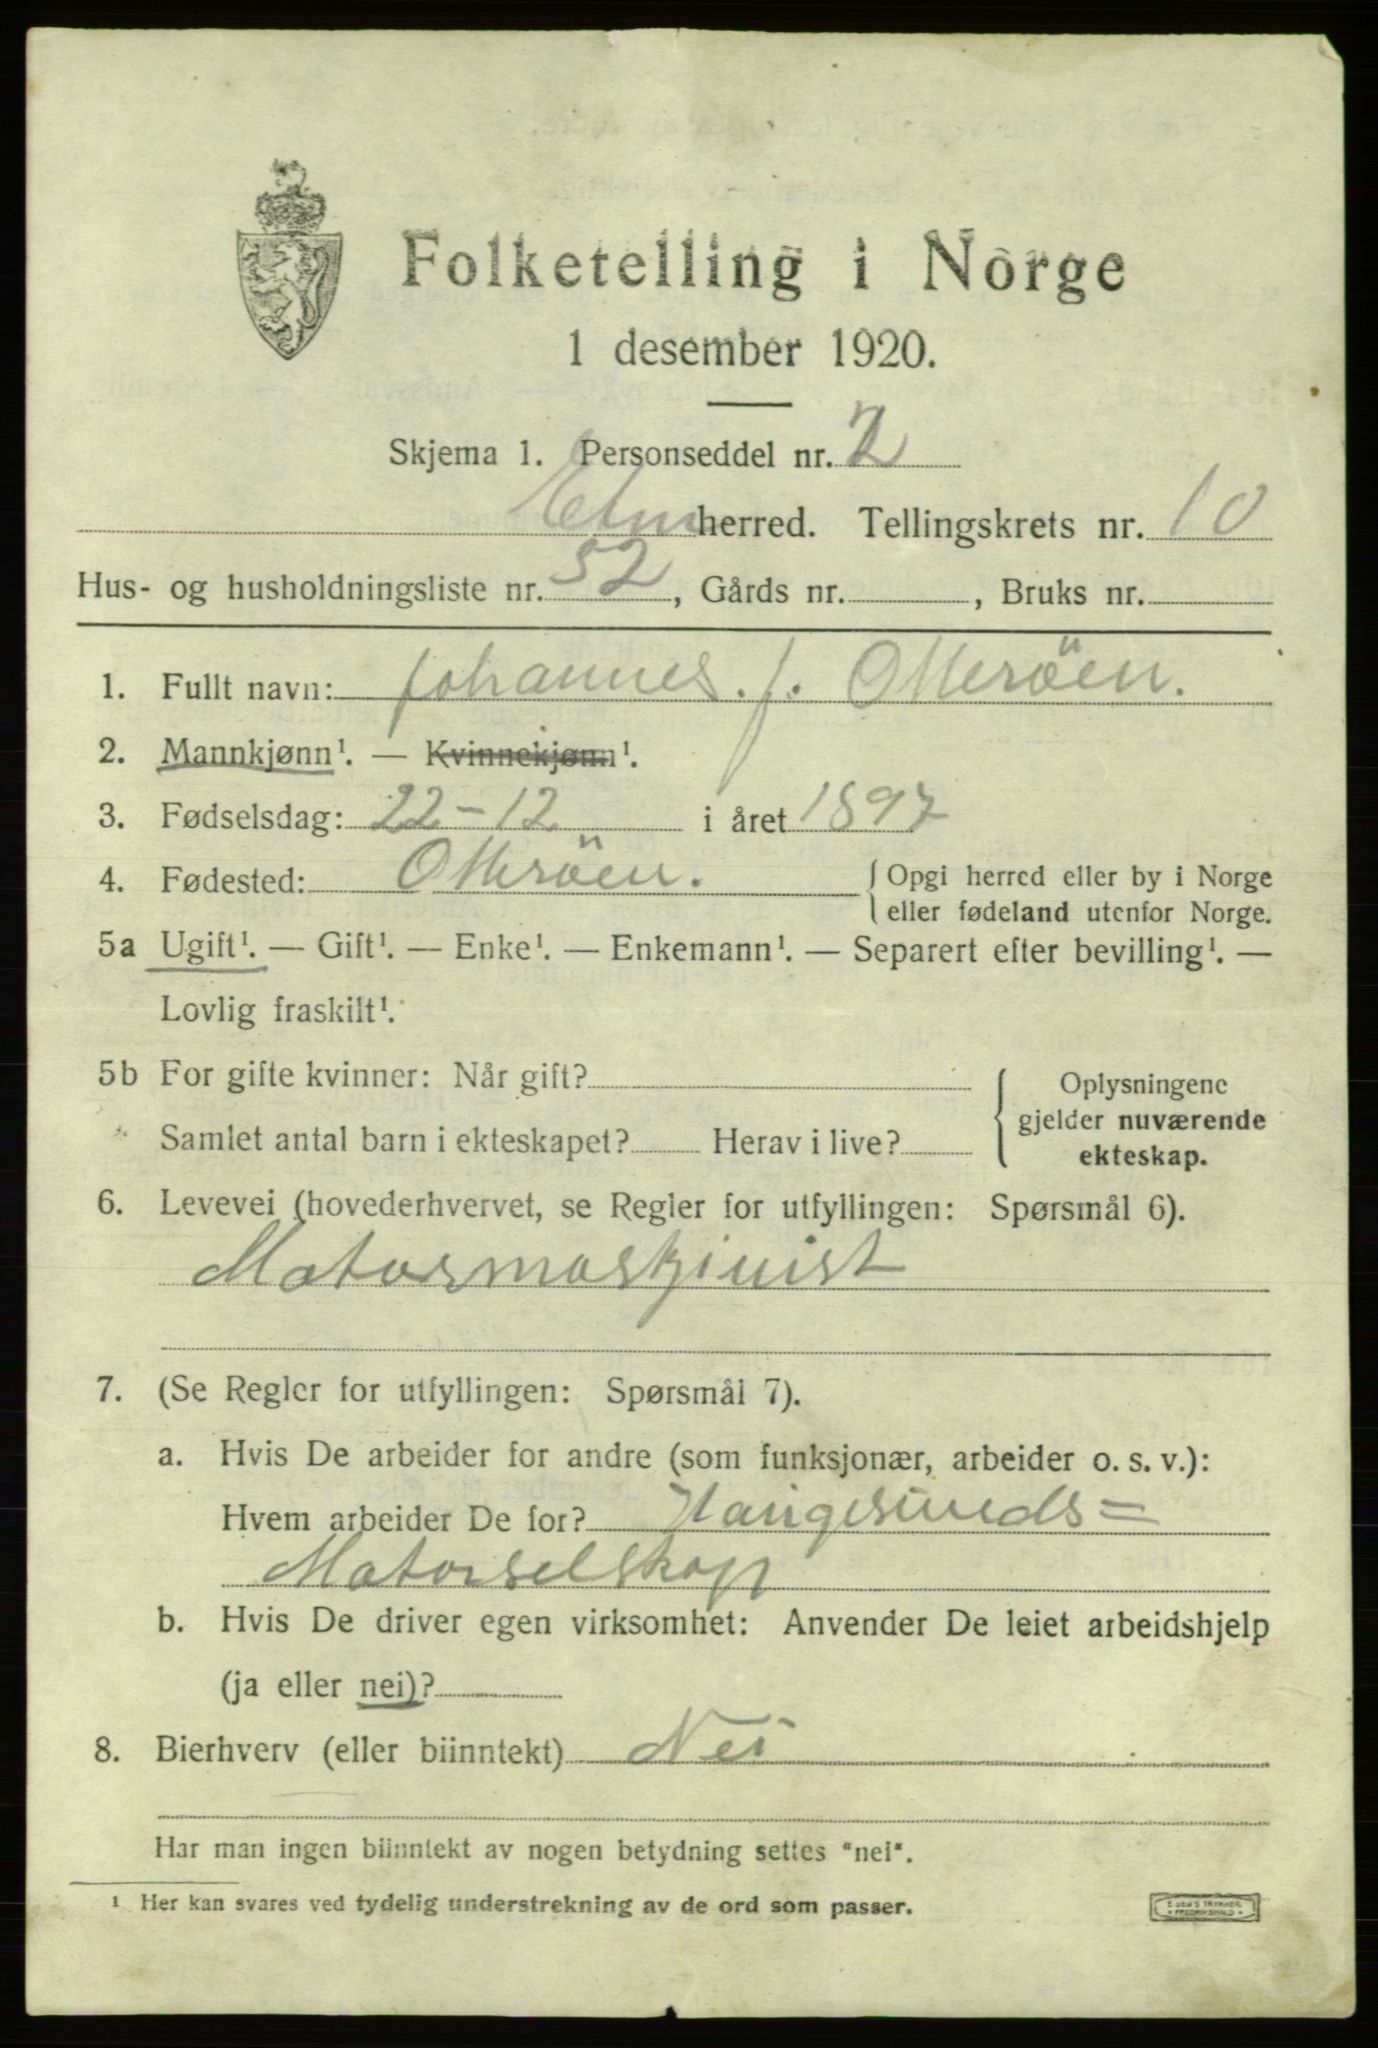 Folketelling i Norge
1 desember 1920.
Skjema 1. Personseddel nr. 2
Etne herred. Tellingskrets nr. 10
Hus- og husholdningsliste nr. 52, Gårds nr. , Bruks nr.
1. Fullt navn: Johannes. J. Otteröen.
2. Mannkjønn¹. — Kvinnekjønn¹.
3. Fødselsdag: 22-12 i året 1897
4. Fødested: Otteröen. { Opgi herred eller by i Norge
eller fødeland utenfor Norge.
5a Ugift¹. — Gift¹. — Enke¹. — Enkemann¹. — Separert efter bevilling¹. —
Lovlig fraskilt¹.
5b For gifte kvinner: Når gift? { Oplysningene
gjelder nuværende
Samlet antal barn i ekteskapet? Herav i live?
ekteskap.
6. Levevei (hovederhvervet, se Regler for utfyllingen: Spørsmål 6).
Motormaskinist
7. (Se Regler for utfyllingen: Spørsmål 7).
a. Hvis De arbeider for andre (som funksjonær, arbeider o. s. v.):
Hvem arbeider De for? Haugesunds=
Motorselskap
b. Hvis De driver egen virksomhet: Anvender De leiet arbeidshjelp
(ja eller nei)?
8. Bierhverv (eller biinntekt) Nei
Har man ingen biinntekt av nogen betydning settes "nei".
¹ Her kan svares ved tydelig understrekning av de ord som passer.